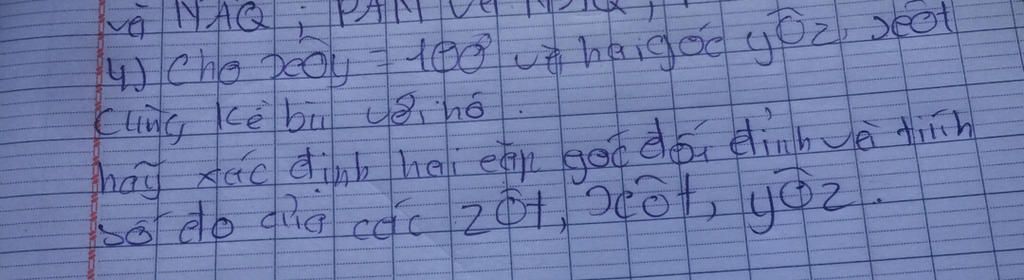 và NAQ ; PAM và NAQ ;
4) Cho xÔy = 100° vẽ hai góc yÔz, xÔt
cùng kề bù với nó.
hãy xác định hai cặp góc đối đỉnh và tính
số đo của các zÔt, xÔt, yÔz.